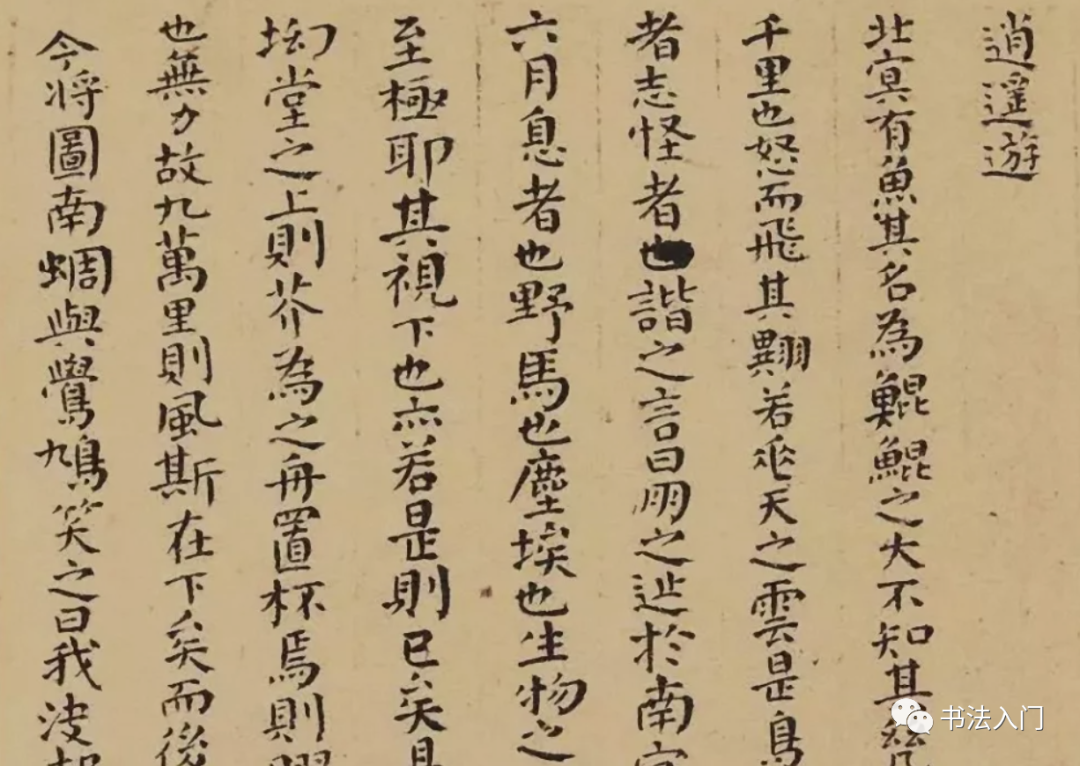 逍遥遊
北㝠有魚其名為鯤鯤之大不知其幾
千里也怒而飛其翼若垂天之雲是鳥
者志怪者也諧之言曰朋之徙於南㝠
六月息者也野馬也塵埃也生物之
至極耶其視下也亦若是則已矣且
坳堂之上則芥為之舟置杯焉則膠
也無力故九萬里則風斯在下矣而後
今將圖南蜩與鷽鳩笑之曰我决起
书法入门